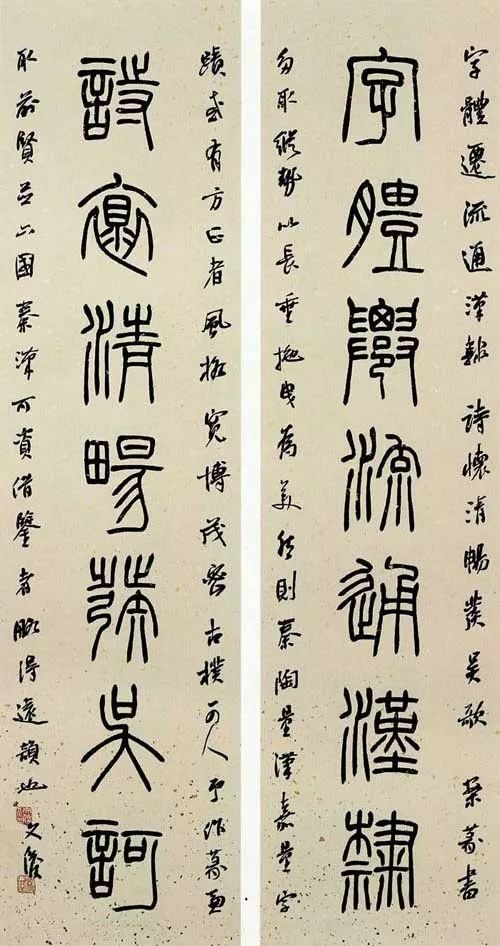 字體遷流通漢隸 詩懷清暢發吳歌 書
字體遷流通漢隸
取縱勢以長垂拖曳為美然則秦陶量漢嘉量字
蹟或有方正者風格寬博茂密古樸可人予作
詩懷清暢發吳歌
取前賢並六國秦漢可資借鑒者 得遠韻也 文俊